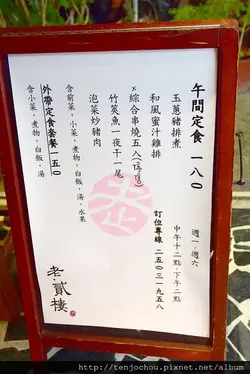 午間定食 一八〇
玉蔥豬排煮
和風蜜汁雞排
×綜合串燒五入
竹筴魚一夜干一尾
泡菜炒豬肉
含前菜，小菜，煮物，白飯，湯，水果
外帶定食套餐 一五〇
含小菜，煮物，白飯，湯
週一～週六
中午十二點～下午二點
訂位專線 二五〇三一九五八
老貳樓
http://tenjochou.pixnet.net/album